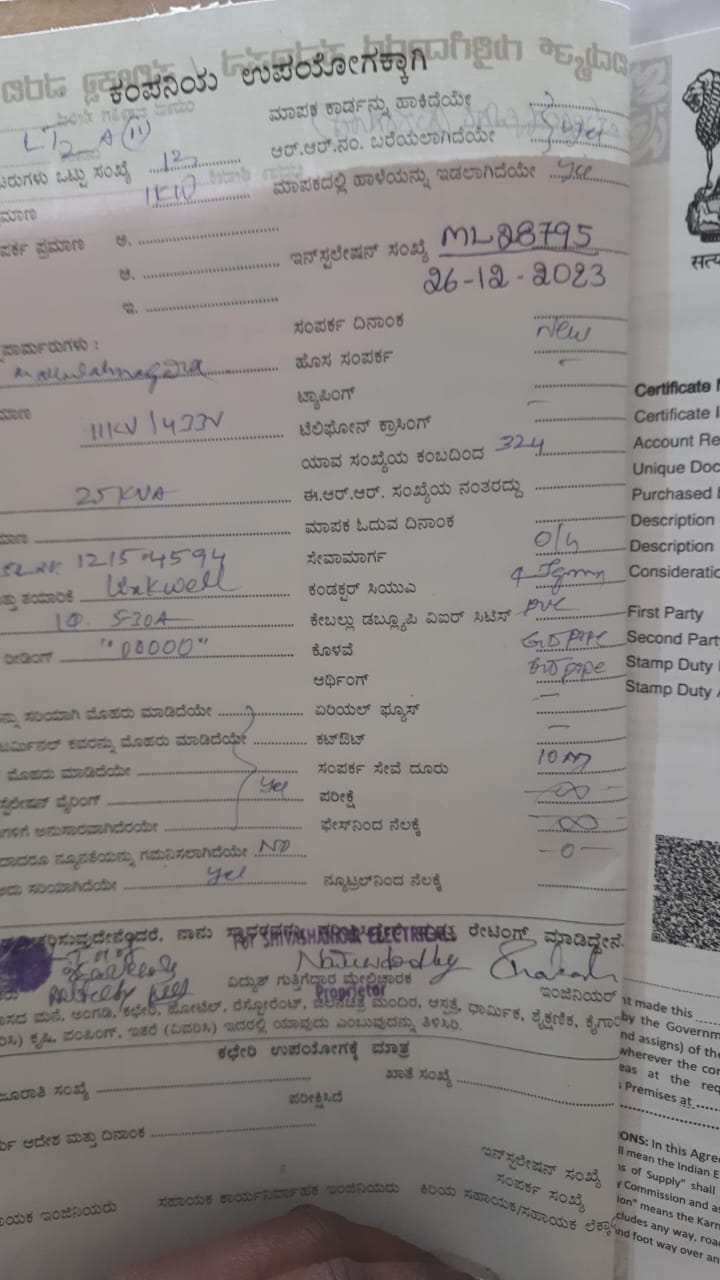 ಕಂಪನಿಯ ಉಪಯೋಗಕ್ಕಾಗಿ
ಮಾಪಕ ಕಾರ್ಡನ್ನು ಹಾಕಿದೆಯೇ
LT2 A (ii)
ಆರ್.ಆರ್.ನಂ. ಬರೆಯಲಾಗಿದೆಯೇ yes
ಒಟ್ಟು ಸಂಖ್ಯೆ 12
ಮಾಪಕದಲ್ಲಿ ಹಾಳೆಯನ್ನು ಇಡಲಾಗಿದೆಯೇ yes
ಮಾಣ 1KW
ರ್ಪಕ ಪ್ರಮಾಣ ಅ.
ಇನ್‌ಸ್ಟಲೇಷನ್ ಸಂಖ್ಯೆ ML28795
ಆ.
26-12-2023
ಇ.
ಸಂಪರ್ಕ ದಿನಾಂಕ
ಹೊಸ ಸಂಪರ್ಕ New
ಟ್ಯಾಪಿಂಗ್ -
ಮಾಣ 11KV/433V
ಟೆಲಿಫೋನ್ ಕ್ರಾಸಿಂಗ್ -
ಯಾವ ಸಂಖ್ಯೆಯ ಕಂಬದಿಂದ 324
25KVA
ಈ.ಆರ್.ಆರ್. ಸಂಖ್ಯೆಯ ನಂತರದ್ದು
ಮಾಣ
ಮಾಪಕ ಓದುವ ದಿನಾಂಕ
12154594
ಸೇವಾಮಾರ್ಗ O/H
ತಯಾರಿಕೆ Linkwell
ಕಂಡಕ್ಟರ್ ಸಿಯುಎ 4 Sqmm
1Φ 5-30A
ಕೇಬಲ್ಲು ಡಬ್ಲ್ಯೂಪಿ ವಿಐಆರ್ ಸಿಟಿಸ್ PVC
ರೀಡಿಂಗ್ "00000"
ಕೊಳವೆ GI Pipe
ಆರ್ಥಿಂಗ್ GI Pipe
ನ್ನು ಸರಿಯಾಗಿ ಮೊಹರು ಮಾಡಿದೆಯೇ
ಏರಿಯಲ್ ಫ್ಯೂಸ್ -
ಟರ್ಮಿನಲ್ ಕವರನ್ನು ಮೊಹರು ಮಾಡಿದೆಯೇ
ಕಟ್‌ಔಟ್ -
ಮೊಹರು ಮಾಡಿದೆಯೇ
ಸಂಪರ್ಕ ಸೇವೆ ದೂರು 10 M
ವೈರಿಂಗ್ yes
ಪರೀಕ್ಷೆ ∞
ಗಳಿಗೆ ಅನುಸಾರವಾಗಿದೆಯೇ
ಫೇಸ್‌ನಿಂದ ನೆಲಕ್ಕೆ ∞
ದಾದರೂ ನ್ಯೂನತೆಯನ್ನು ಗಮನಿಸಲಾಗಿದೆಯೇ NO
-0-
ಸರಿಯಾಗಿದೆಯೇ yes
ನ್ಯೂಟ್ರಲ್‌ನಿಂದ ನೆಲಕ್ಕೆ
ನಾನು ರೇಟಿಂಗ್ ಮಾಡಿದ್ದೇನೆ.
For SHIVASHANKAR ELECTRICALS
ವಿದ್ಯುತ್ ಗುತ್ತಿಗೆದಾರ ಮೇಲ್ವಿಚಾರಕ
ಇಂಜಿನಿಯರ್
Proprietor
ಮನೆ, ಅಂಗಡಿ, ಕಛೇರಿ, ಹೋಟೆಲ್, ರೆಸ್ಟೋರೆಂಟ್, ಮಂದಿರ, ಆಸ್ಪತ್ರೆ, ಧಾರ್ಮಿಕ, ಶೈಕ್ಷಣಿಕ,
ಕೃಷಿ, ಪಂಪಿಂಗ್, ಇತರೆ (ವಿವರಿಸಿ) ಇದರಲ್ಲಿ ಯಾವುದು ಎಂಬುವುದನ್ನು ತಿಳಿಸಿರಿ.
ಕಛೇರಿ ಉಪಯೋಗಕ್ಕೆ ಮಾತ್ರ
ಸಂಖ್ಯೆ
ಖಾತೆ ಸಂಖ್ಯೆ
ಪರೀಕ್ಷಿಸಿದೆ
ಆದೇಶ ಮತ್ತು ದಿನಾಂಕ
ಇನ್‌ಸ್ಟಲೇಷನ್ ಸಂಖ್ಯೆ
ಸಂಪರ್ಕ ಸಂಖ್ಯೆ
ಇಂಜಿನಿಯರು
ಸಹಾಯಕ ಕಾರ್ಯನಿರ್ವಾಹಕ ಇಂಜಿನಿಯರು
ಕಿರಿಯ ಸಹಾಯಕ/ಸಹಾಯಕ
ಸತ್ಯ
Certificate
Certificate
Account Re
Unique Doc
Purchased
Description
Description
Consideratio
First Party
Second Party
Stamp Duty
Stamp Duty
nt made this
by the Governm
nd assigns) of the
wherever the con
eas at the req
Premises at
ONS: In this Agre
ll mean the Indian E
ns of Supply" shall
y Commission and as
ion" means the Karn
cludes any way, roa
nd foot way over an